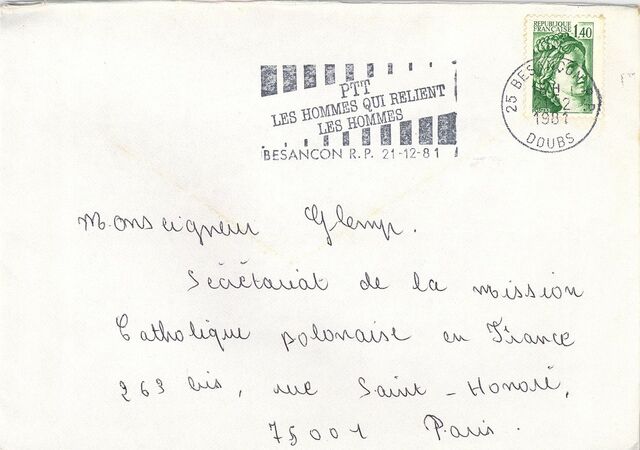 REPUBLIQUE
FRANÇAISE 1,40
PTT
LES HOMMES QUI RELIENT
LES HOMMES
BESANCON R.P. 21-12-81
25 BESANCON
1981
DOUBS
Monseigneur Glemp.
Sécrétariat de la mission
Catholique polonaise en France
263 bis, rue Saint-Honoré,
75001 Paris.